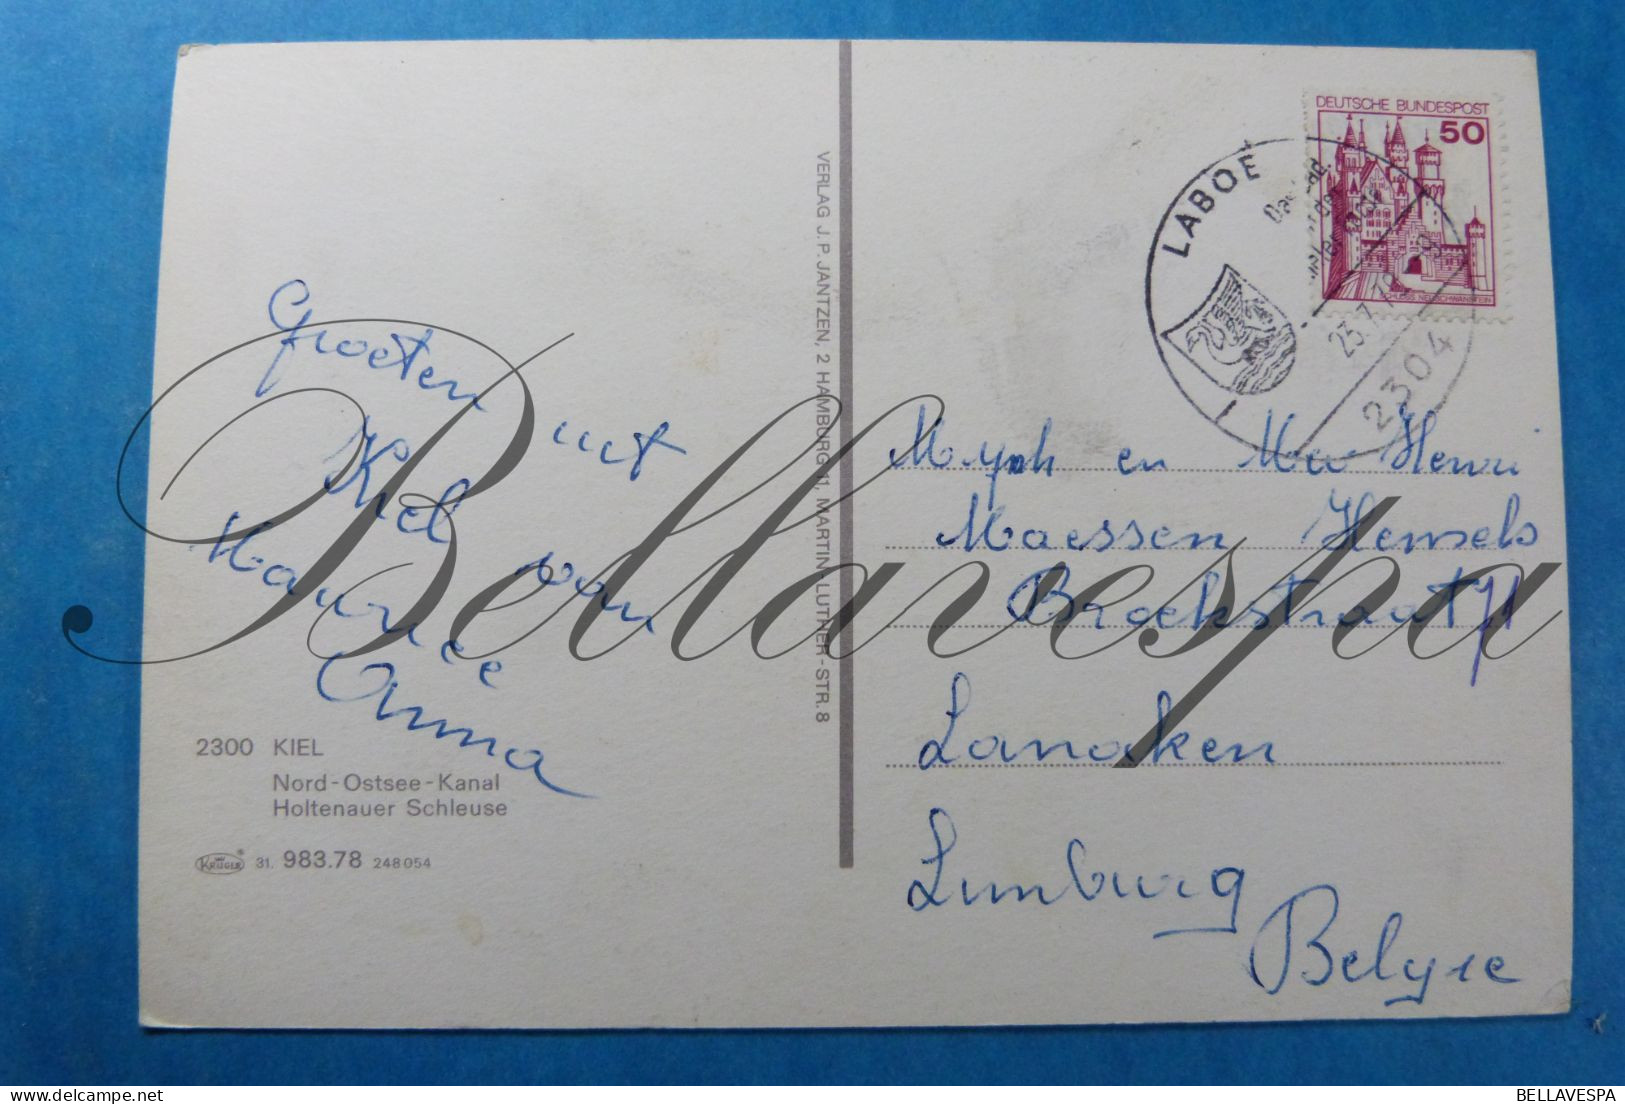 Groeten uit
Kiel van
Maurice
Anna
2300 KIEL
Nord-Ostsee-Kanal
Holtenauer Schleuse
KRÜGER
31. 983.78 248054
VERLAG J. P. JANTZEN, 2 HAMBURG 11, MARTIN-LUTHER-STR. 8
DEUTSCHE BUNDESPOST
50
SCHLOSS NEUSCHWANSTEIN
LABOE
2304
en Mw Henri
Maessen Hensels
Broekstraat 71
Lanaken
Limburg
Belgie
Bellavespa
BELLAVESPA